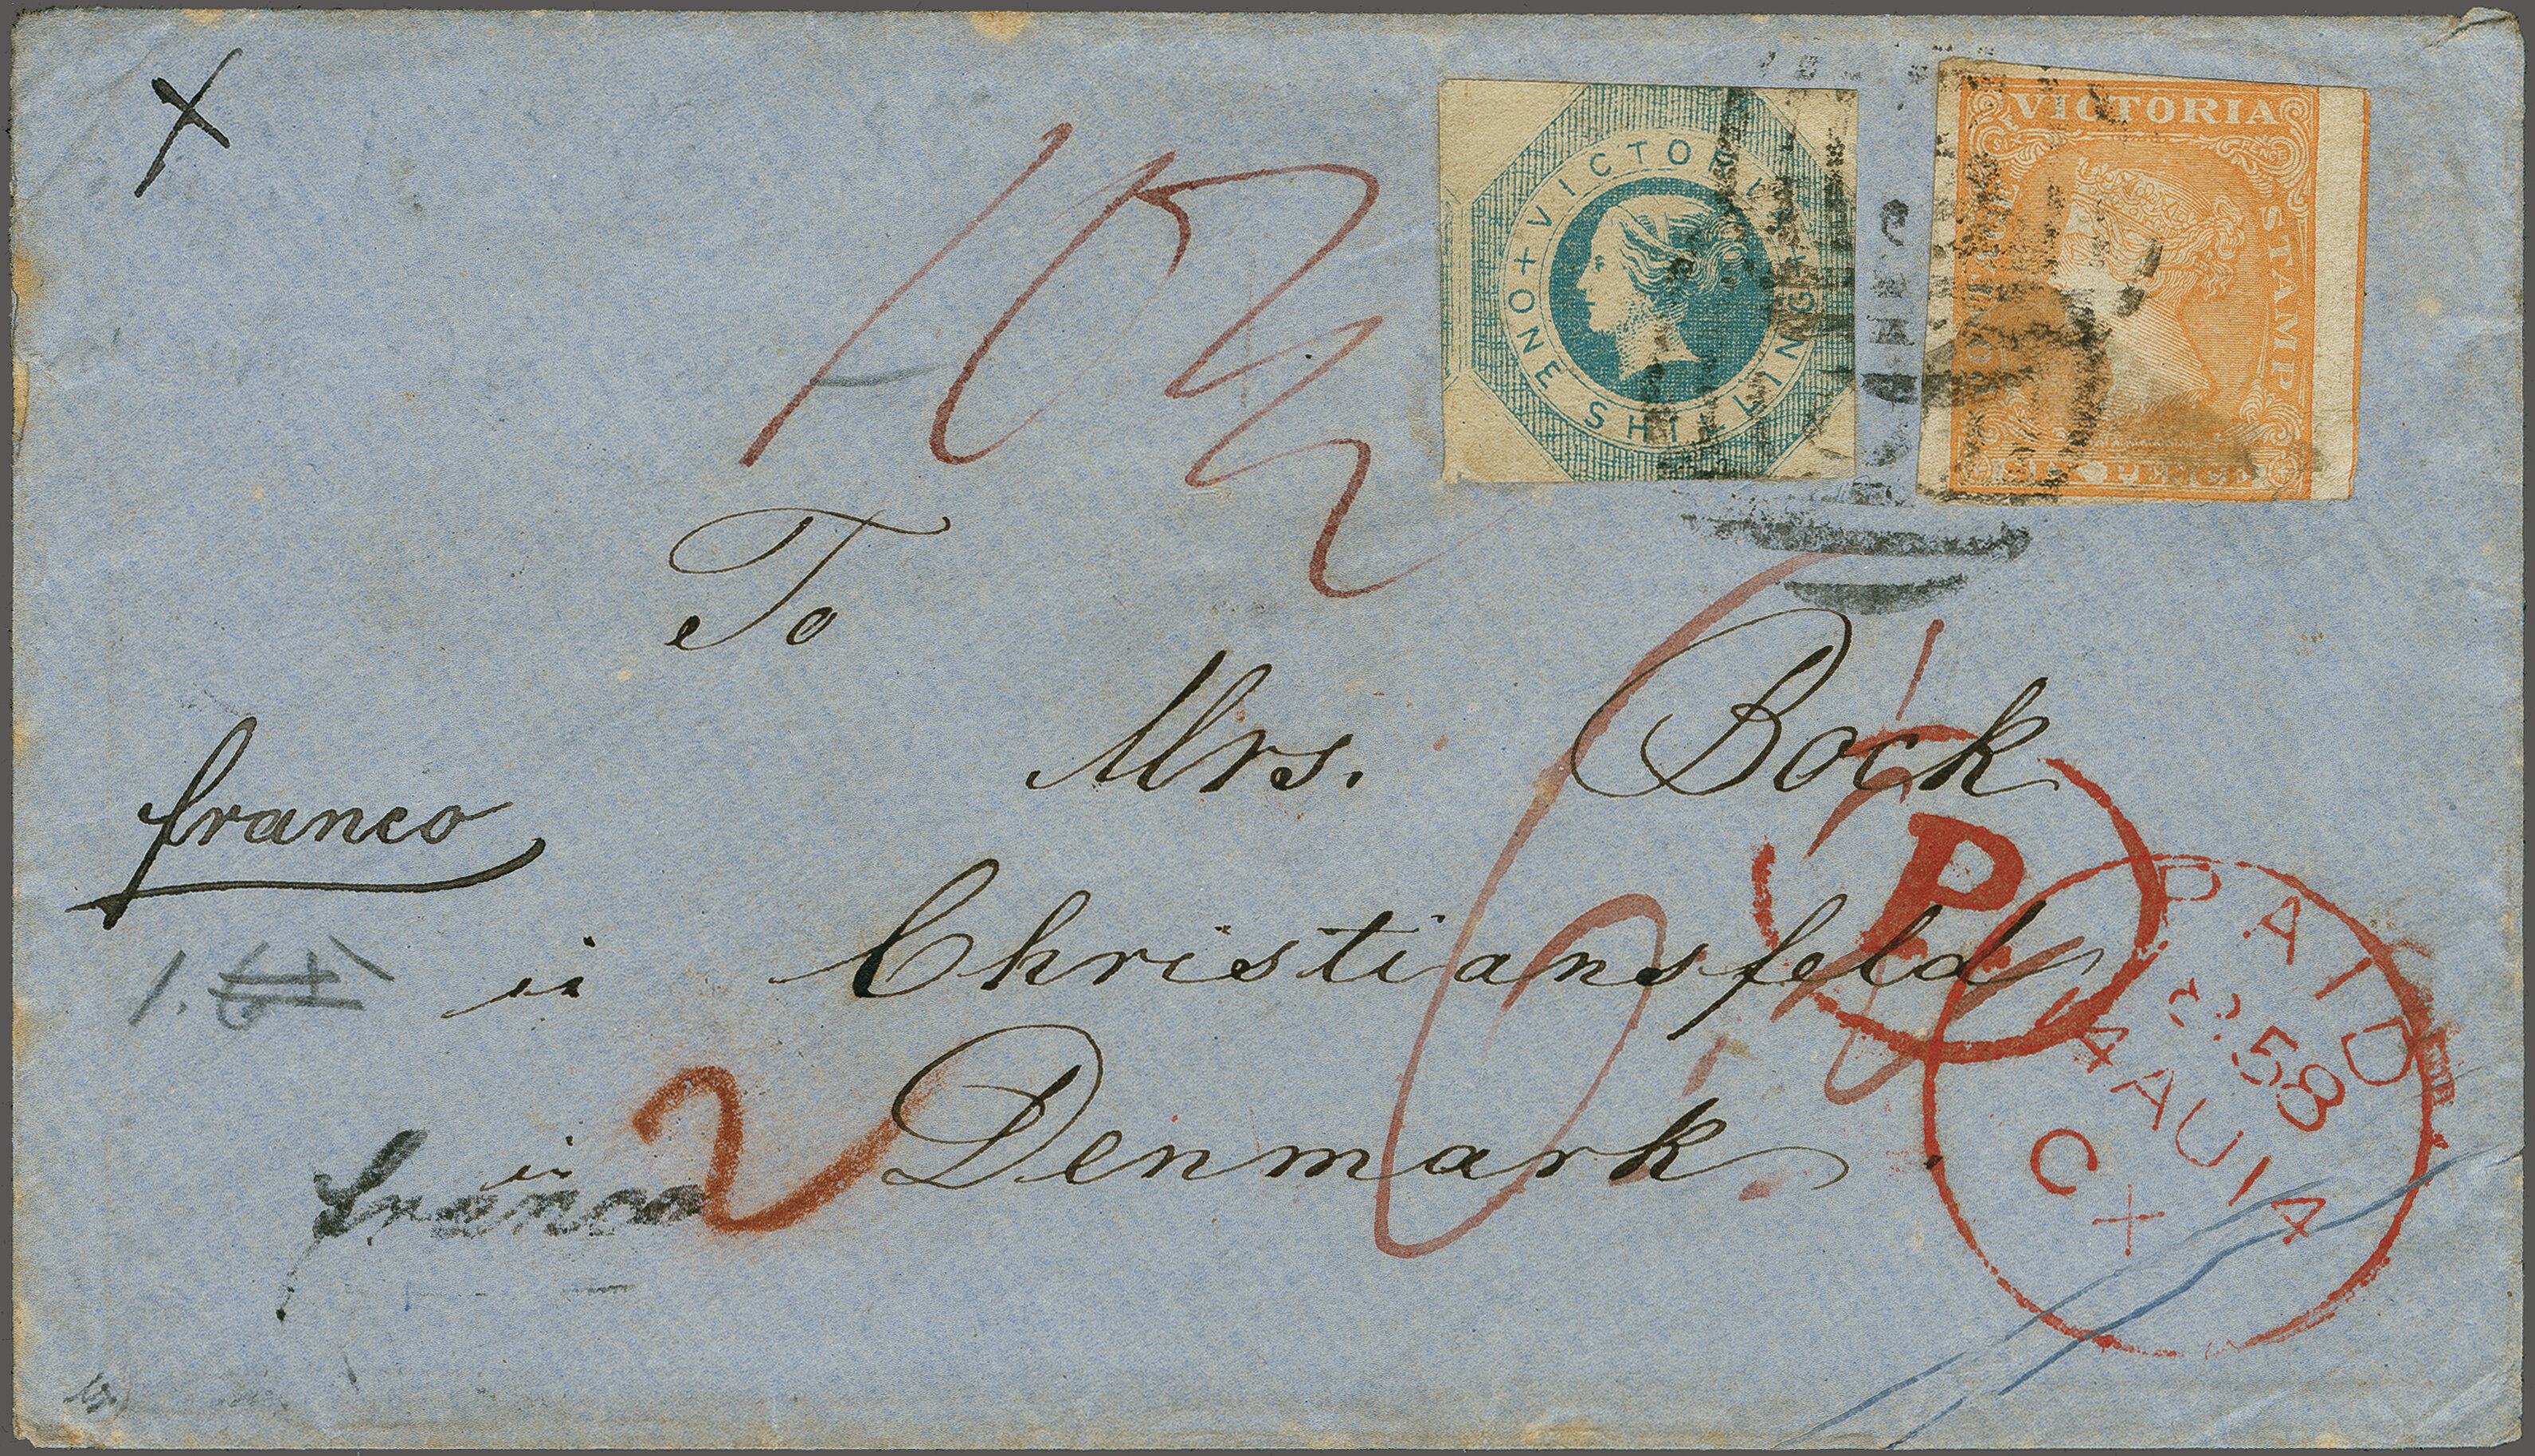 X
VICTORIA
ONE SHILLING
VICTORIA
STAMP
SIX PENCE
To
Mrs. Bock
franco
in Christiansfeld
in Denmark.
franco
2
P
PAID
4 AU 1 A
58
CX